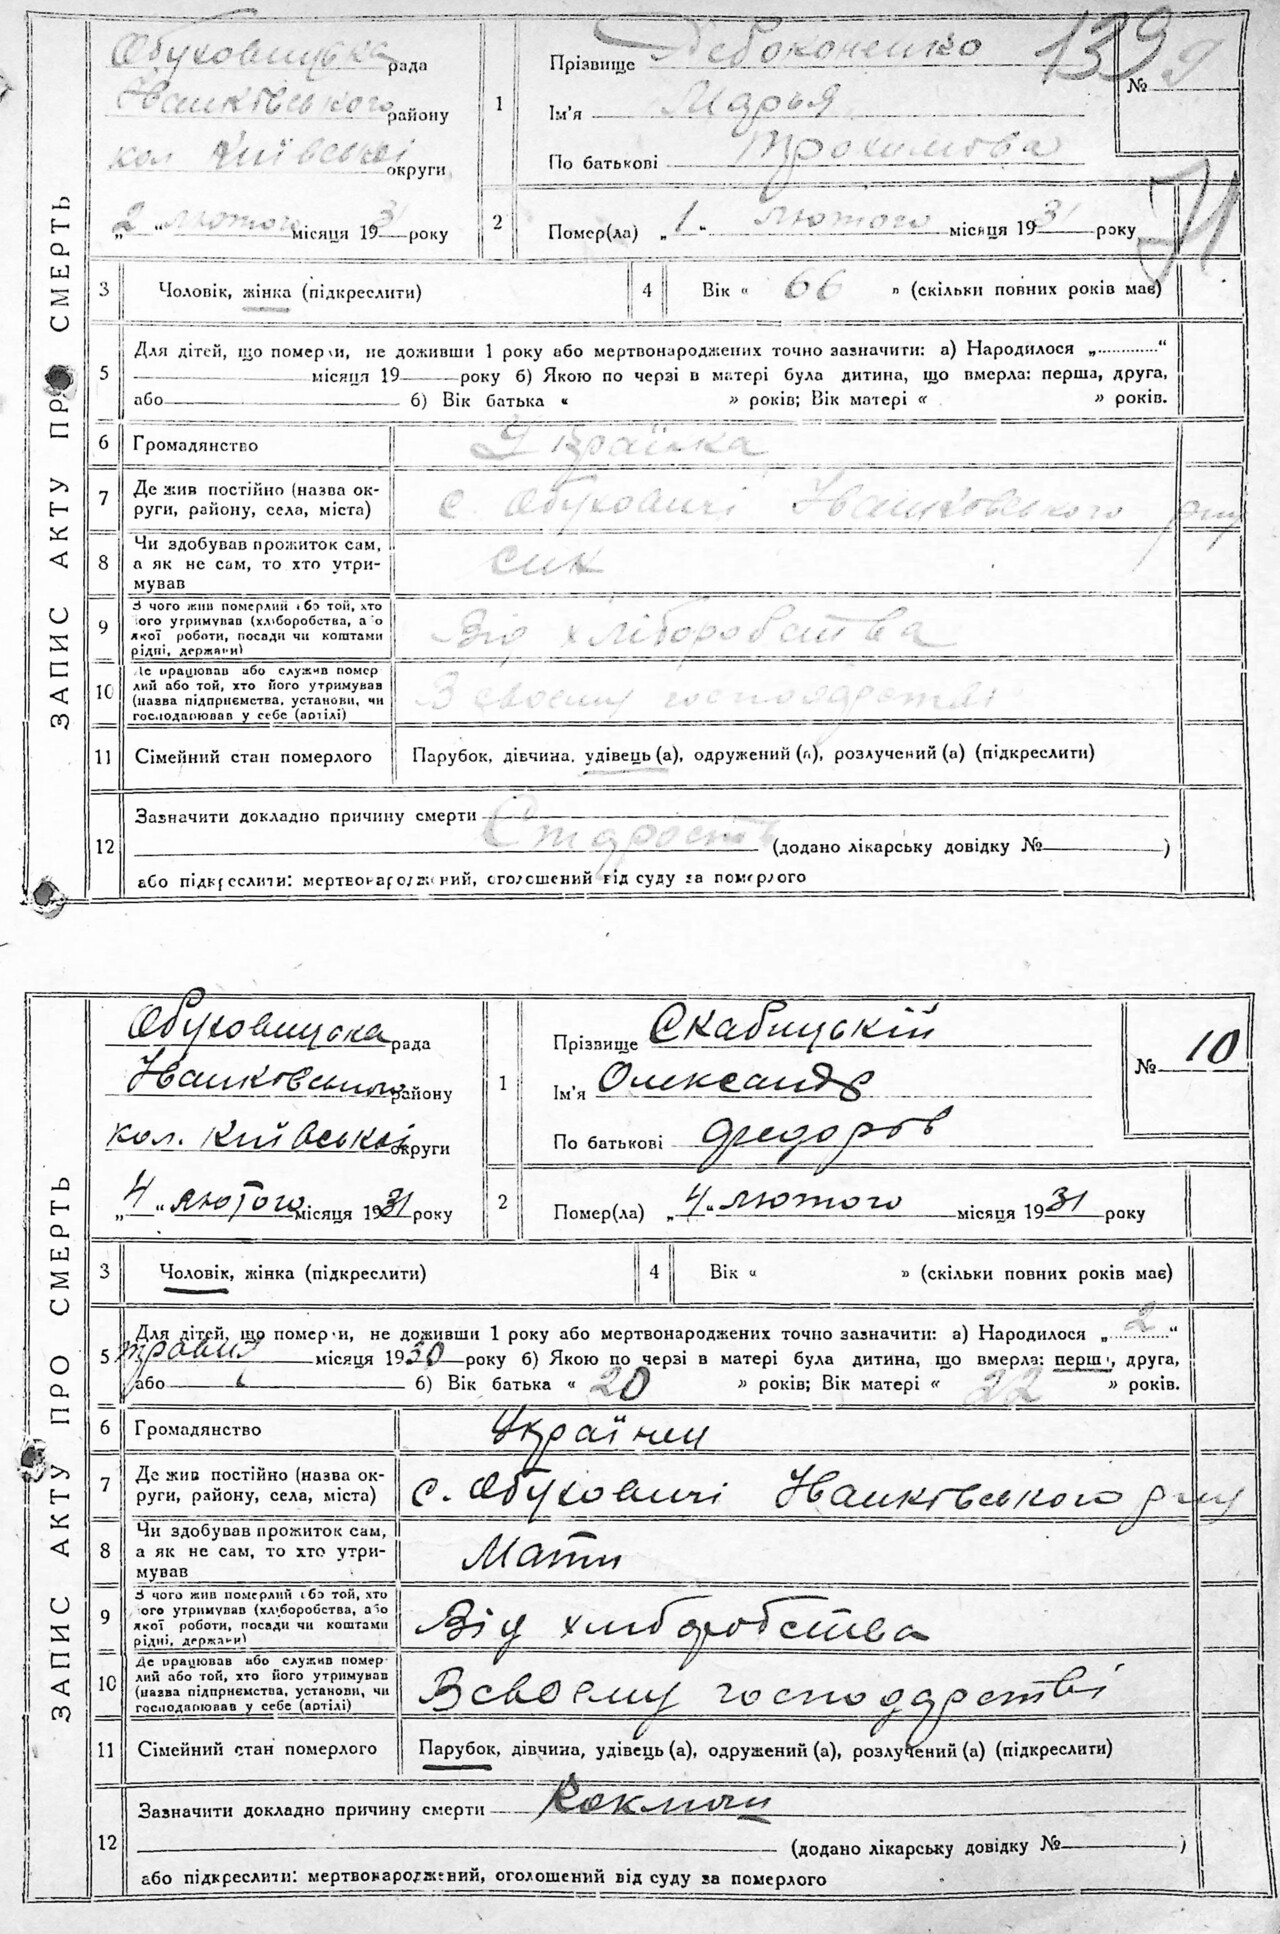 ЗАПИС АКТУ ПРО СМЕРТЬ
Обуховицька рада
Іванківського району
кол Київської округи
„2" лютого місяця 1931 року
1
Прізвище Дебоконенко
Ім'я Марья
По батькові Трохимова
№ 9
139
71
2 Помер(ла) „1" лютого місяця 1931 року
3 Чоловік, жінка (підкреслити)
4 Вік « 66 » (скільки повних років має)
5 Для дітей, що померли, не доживши 1 року або мертвонароджених точно зазначити: а) Народилося „ “
місяця 19 року б) Якою по черзі в матері була дитина, що вмерла: перша, друга,
або б) Вік батька « » років; Вік матері « » років.
6 Громадянство Українка
7 Де жив постійно (назва ок-
руги, району, села, міста) с. Обуховичі Іванківського р-ну
8 Чи здобував прожиток сам,
а як не сам, то хто утри-
мував син
9 З чого жив померлий або той, хто
його утримував (хліборобства, або
якої роботи, посади чи коштами
рідні, держави) Від хліборобства
10 Де працював або служив помер
лий або той, хто його утримував
(назва підприємства, установи, чи
господарював у себе (артілі) В своєму господарстві
11 Сімейний стан померлого Парубок, дівчина, удівець (а), одружений (а), розлучений (а) (підкреслити)
12 Зазначити докладно причину смерти Старость
(додано лікарську довідку № )
або підкреслити: мертвонароджений, оголошений від суду за померлого
ЗАПИС АКТУ ПРО СМЕРТЬ
Обуховицька рада
Іванківського району
кол. Київської округи
„4" лютого місяця 1931 року
1
Прізвище Скабицькій
Ім'я Олександр
По батькові Федорів
№ 10
2 Помер(ла) „4" лютого місяця 1931 року
3 Чоловік, жінка (підкреслити)
4 Вік « » (скільки повних років має)
5 Для дітей, що померли, не доживши 1 року або мертвонароджених точно зазначити: а) Народилося „2“
травня місяця 1930 року б) Якою по черзі в матері була дитина, що вмерла: перша, друга,
або б) Вік батька « 20 » років; Вік матері « 22 » років.
6 Громадянство Українец
7 Де жив постійно (назва ок-
руги, району, села, міста) с. Обуховичі Іванківського р-ну
8 Чи здобував прожиток сам,
а як не сам, то хто утри-
мував Мати
9 З чого жив померлий або той, хто
його утримував (хліборобства, або
якої роботи, посади чи коштами
рідні, держави) Від хліборобства
10 Де працював або служив помер-
лий або той, хто його утримував
(назва підприємства, установи, чи
господарював у себе (артілі) В своєму господарстві
11 Сімейний стан померлого Парубок, дівчина, удівець (а), одружений (а), розлучений (а) (підкреслити)
12 Зазначити докладно причину смерти Коклюш
(додано лікарську довідку № )
або підкреслити: мертвонароджений, оголошений від суду за померлого